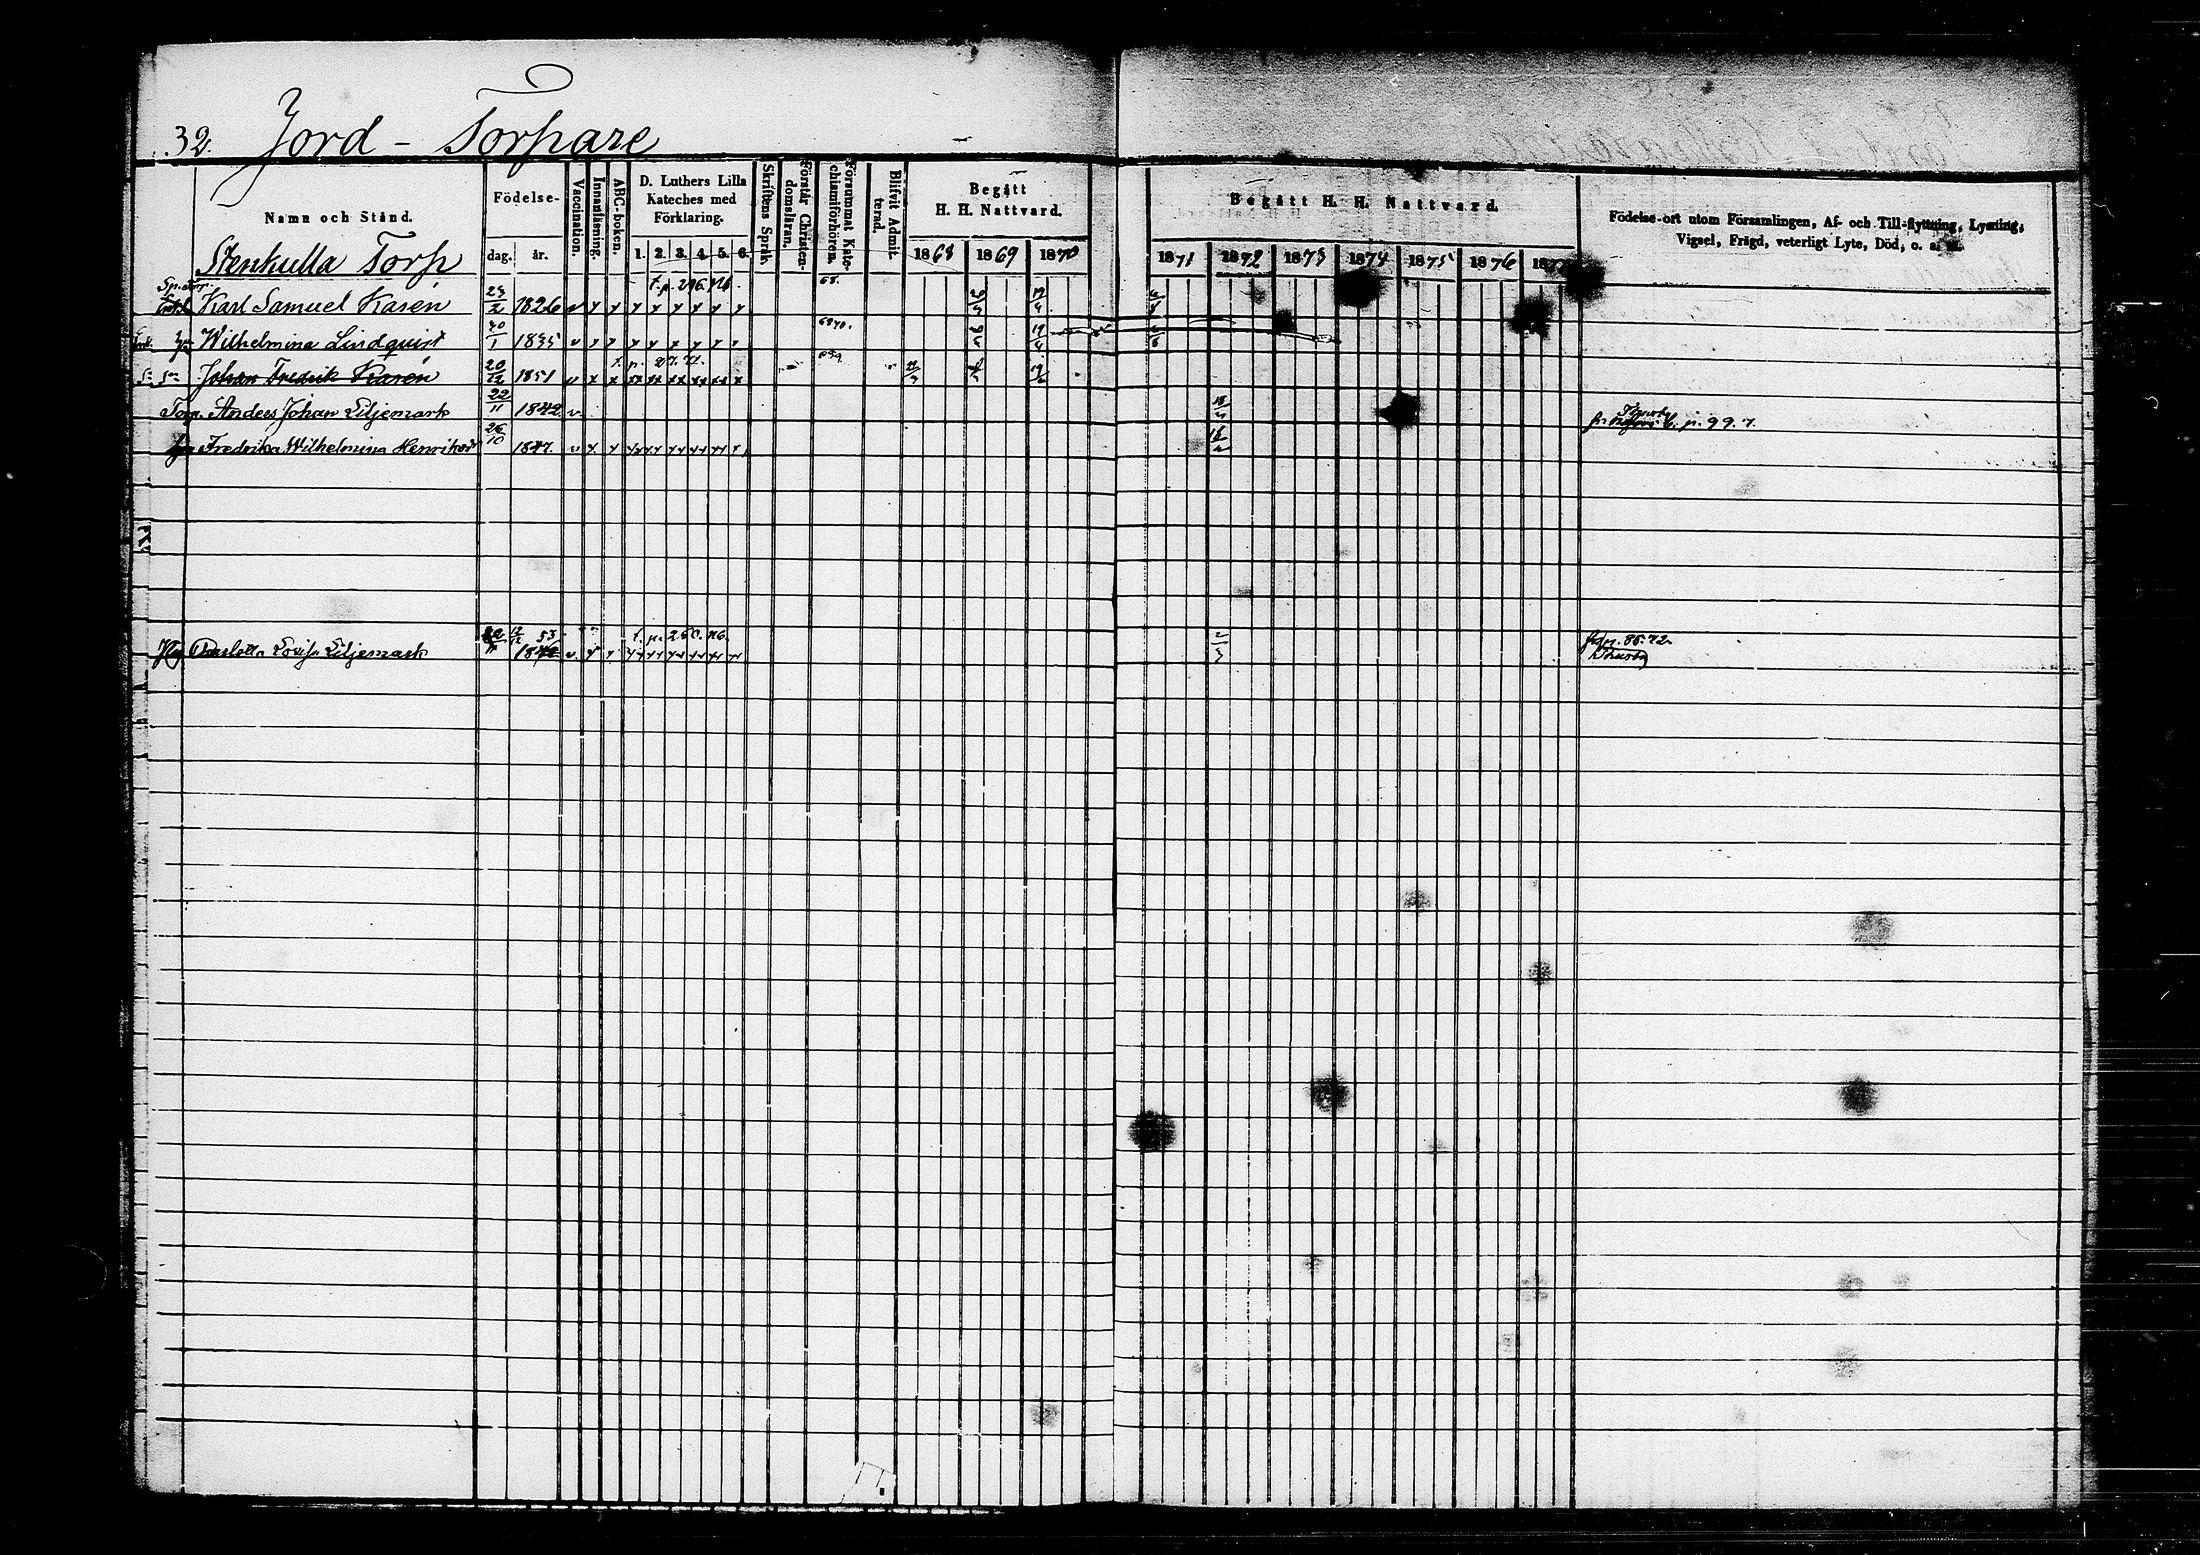 32. Jord - Torpare
Namn och Stånd.
Födelse-
dag. år.
Vaccination.
Innanläsning.
ABC-boken.
D. Luthers Lilla
Kateches med
Förklaring.
1. 2. 3. 4. 5. 6.
Skriftens Språk.
Förstår Christen-
domsläran.
Försummat Kate-
chismiförhören.
Blifvit Admit-
terad.
Begått
H. H. Nattvard.
1868 1869 1870
Begått H. H. Nattvard.
1871 1872 1873 1874 1875 1876 1877
Födelse-ort utom Församlingen, Af- och Till-flyttning, Lysning,
Vigsel, Frägd, veterligt Lyte, Död, o. s. v.
Stenkulla Torp
t. p. 296. 68.
Karl Samuel Karén 23/2 1826 v
Wilhelmina Lindquist 30/1 1835 v
t. p. 27. 72.
Johan Fredrik Karén 20/12 1851 v
Torp. Anders Johan Liljemark 22/11 1842 v. 18/4
p. 99. 7.
Fredrika Wilhelmina Henriksd. 26/10 1847. v
t. p. 250. 76.
53
Charlotta Lovisa Liljemark 1842 v.
p. 85. 72